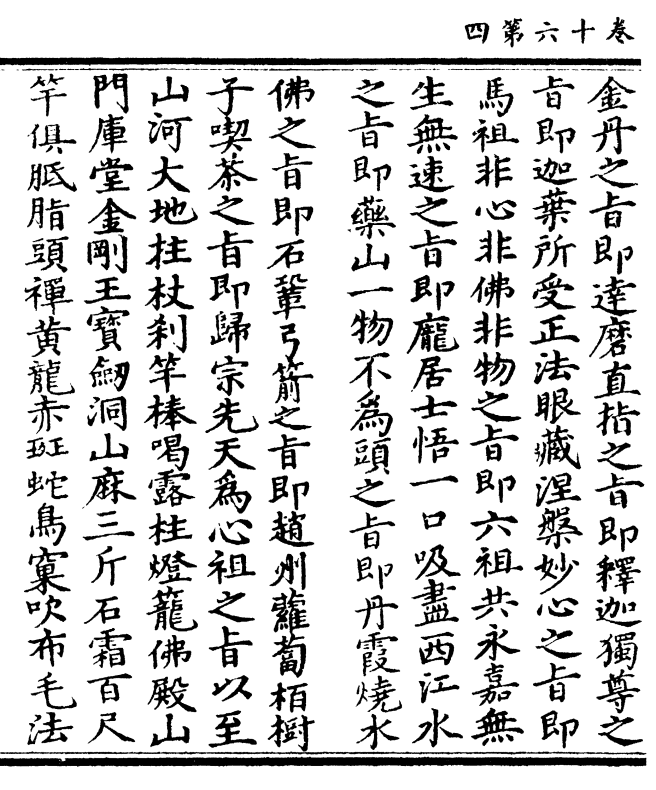 卷十六第四
金丹之旨即達磨直指之旨即釋迦獨尊之
旨即迦葉所受正法眼藏涅槃妙心之旨即
馬祖非心非佛非物之旨即六祖共永嘉無
生無速之旨即龐居士悟一口吸盡西江水
之旨即藥山一物不爲頭之旨即丹霞燒水
佛之旨即石鞏弓箭之旨即趙州蘿蔔栢樹
子喫茶之旨即歸宗先天爲心祖之旨以至
山河大地柱杖刹竿棒喝露柱燈籠佛殿山
門庫堂金剛王寶劒洞山麻三斤石霜百尺
竿俱胝脂頭禪黄龍赤蛇鳥窠吹布毛法